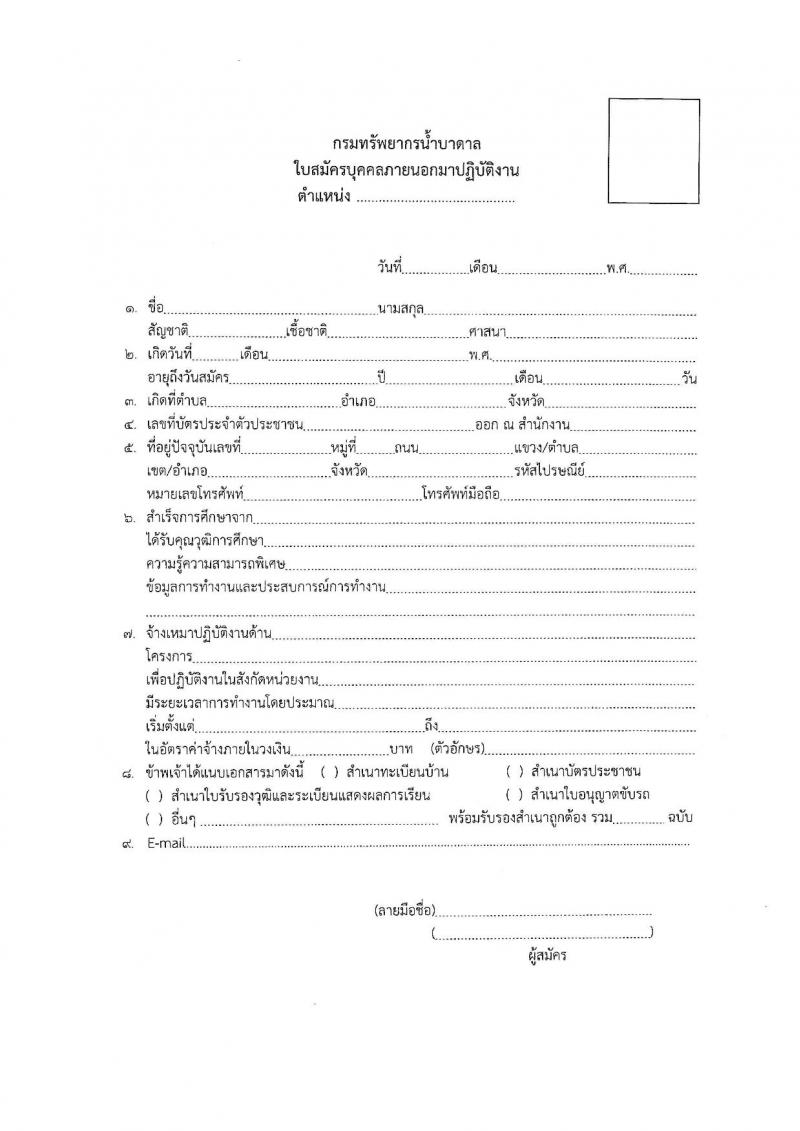 กรมทรัพยากรน้ำบาดาล
ใบสมัครบุคคลภายนอกมาปฏิบัติงาน
ตำแหน่ง ....................................
วันที่................เดือน..........................พ.ศ.................
๑. ชื่อ..................................................นามสกุล................................................................
สัญชาติ.......................เชื้อชาติ.................................ศาสนา.............................................
๒. เกิดวันที่...........เดือน...............................................พ.ศ.................................................
อายุถึงวันสมัคร...................................ปี...............................เดือน.................................วัน
๓. เกิดที่ตำบล...............................อำเภอ...............................จังหวัด...................................
๔. เลขที่บัตรประจำตัวประชาชน.........................................ออก ณ สำนักงาน..............................
๕. ที่อยู่ปัจจุบันเลขที่.....................หมู่ที่.........ถนน.......................แขวง/ตำบล...........................
เขต/อำเภอ.............................จังหวัด...................................รหัสไปรษณีย์..........................
หมายเลขโทรศัพท์...........................................โทรศัพท์มือถือ...............................................
๖. สำเร็จการศึกษาจาก.........................................................................................................
ได้รับคุณวุฒิการศึกษา......................................................................................................
ความรู้ความสามารถพิเศษ.................................................................................................
ข้อมูลการทำงานและประสบการณ์การทำงาน.........................................................................
....................................................................................................................................
๗. จ้างเหมาปฏิบัติงานด้าน....................................................................................................
โครงการ.......................................................................................................................
เพื่อปฏิบัติงานในสังกัดหน่วยงาน.........................................................................................
มีระยะเวลาการทำงานโดยประมาณ......................................................................................
เริ่มตั้งแต่......................................................ถึง..............................................................
ในอัตราค่าจ้างภายในวงเงิน.......................บาท (ตัวอักษร)..................................................
๘. ข้าพเจ้าได้แนบเอกสารมาดังนี้ ( ) สำเนาทะเบียนบ้าน ( ) สำเนาบัตรประชาชน
( ) สำเนาใบรับรองวุฒิและระเบียนแสดงผลการเรียน ( ) สำเนาใบอนุญาตขับรถ
( ) อื่นๆ ......................................................... พร้อมรับรองสำเนาถูกต้อง รวม............ ฉบับ
๙. E-mail.........................................................................................................................
(ลายมือชื่อ)....................................................
(....................................................)
ผู้สมัคร